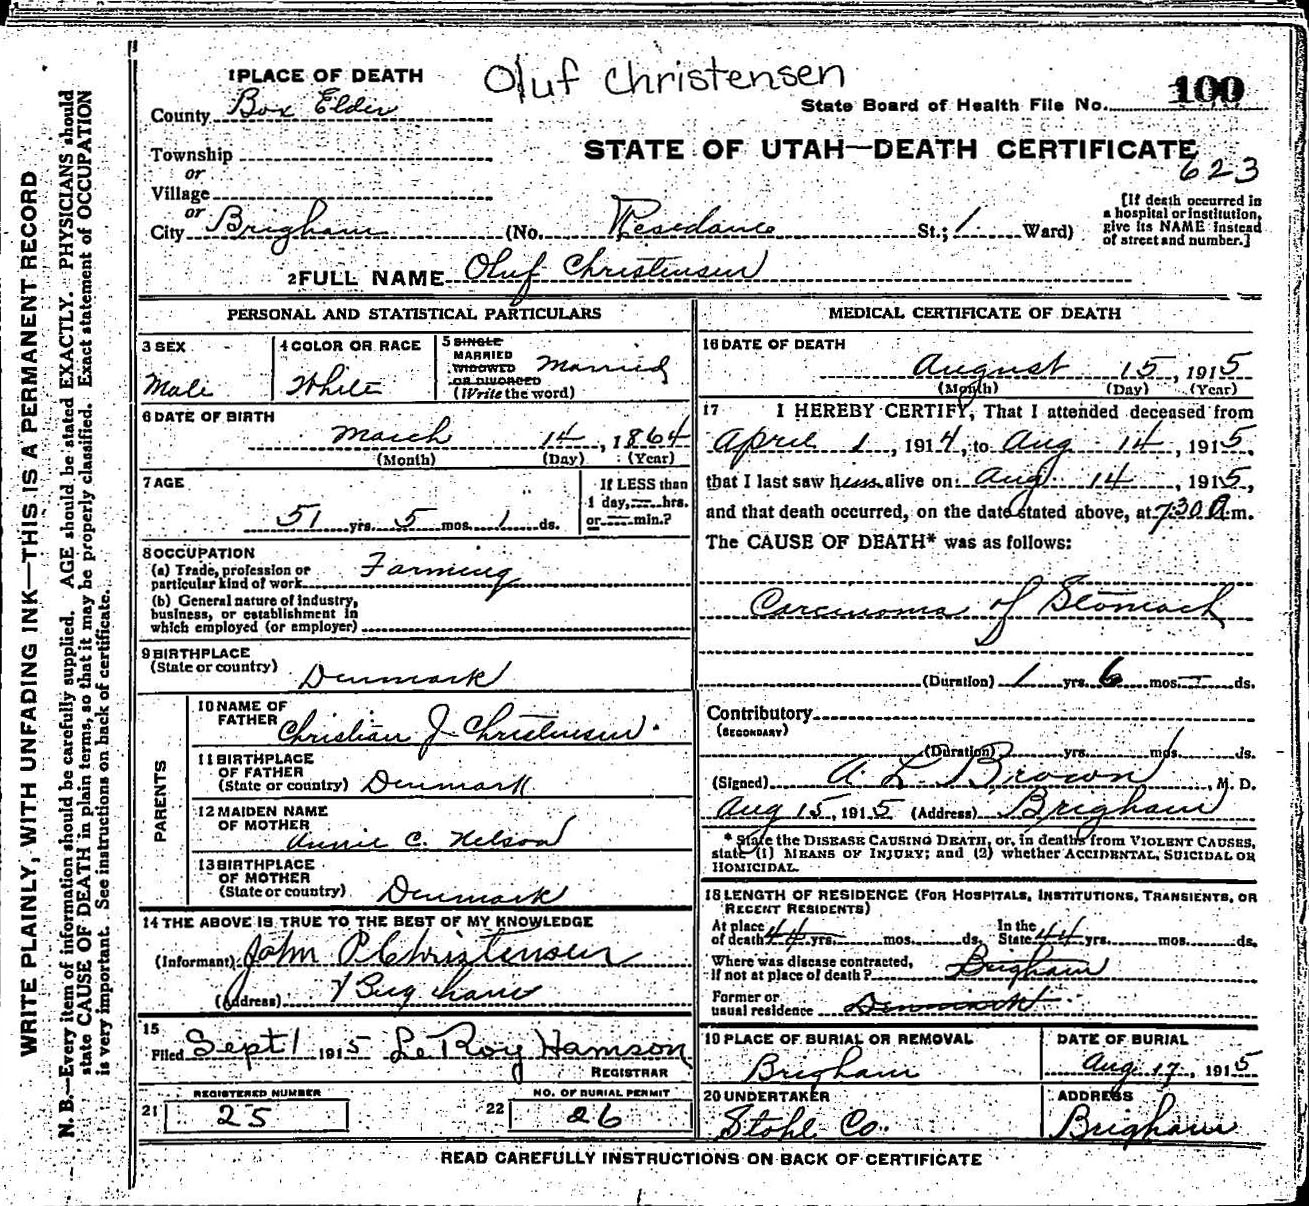 Oluf Christensen
1 PLACE OF DEATH
County Box Elder
State Board of Health File No. 100
Township
or
Village
or
STATE OF UTAH—DEATH CERTIFICATE
623
City Brigham (No. Resedance St.; 1 Ward)
[If death occurred in
a hospital or institution,
give its NAME instead
of street and number.]
2 FULL NAME Oluf Christensen
PERSONAL AND STATISTICAL PARTICULARS
3 SEX
Male
4 COLOR OR RACE
White
5 SINGLE
MARRIED
WIDOWED
OR DIVORCED
(Write the word)
Married
6 DATE OF BIRTH
March 14, 1864
(Month) (Day) (Year)
7 AGE
51 yrs. 5 mos. 1 ds.
If LESS than
1 day, hrs.
or min.?
8 OCCUPATION
(a) Trade, profession or
particular kind of work Farming
(b) General nature of industry,
business, or establishment in
which employed (or employer)
9 BIRTHPLACE
(State or country)
Denmark
PARENTS
10 NAME OF
FATHER
Christian J Christensen
11 BIRTHPLACE
OF FATHER
(State or country) Denmark
12 MAIDEN NAME
OF MOTHER
Annie C. Nelson
13 BIRTHPLACE
OF MOTHER
(State or country) Denmark
14 THE ABOVE IS TRUE TO THE BEST OF MY KNOWLEDGE
(Informant) John P Christensen
(Address) Brigham
15
Filed Sept 1 1915 LeRoy Hamson
REGISTRAR
REGISTERED NUMBER
21 25
NO. OF BURIAL PERMIT
22 26
MEDICAL CERTIFICATE OF DEATH
16 DATE OF DEATH
August 15, 1915
(Month) (Day) (Year)
17 I HEREBY CERTIFY, That I attended deceased from
April 1, 1914, to Aug 14, 1915,
that I last saw him alive on Aug 14, 1915,
and that death occurred, on the date stated above, at 7:30 A.m.
The CAUSE OF DEATH* was as follows:
Carcinoma of Stomach
(Duration) 1 yrs. 6 mos. — ds.
Contributory
(SECONDARY)
(Duration) yrs. mos. ds.
(Signed) A. L. Brown, M. D.
Aug 15, 1915 (Address) Brigham
* State the DISEASE CAUSING DEATH, or, in deaths from VIOLENT CAUSES,
state (1) MEANS OF INJURY; and (2) whether ACCIDENTAL, SUICIDAL OR
HOMICIDAL.
18 LENGTH OF RESIDENCE (FOR HOSPITALS, INSTITUTIONS, TRANSIENTS, OR
RECENT RESIDENTS)
At place
of death 44 yrs. mos. ds.
In the
State 44 yrs. mos. ds.
Where was disease contracted,
if not at place of death? Brigham
Former or
usual residence Denmark
19 PLACE OF BURIAL OR REMOVAL
Brigham
DATE OF BURIAL
Aug 17, 1915
20 UNDERTAKER
Stohl Co.
ADDRESS
Brigham
READ CAREFULLY INSTRUCTIONS ON BACK OF CERTIFICATE
WRITE PLAINLY, WITH UNFADING INK—THIS IS A PERMANENT RECORD
N. B.—Every item of information should be carefully supplied. AGE should be stated EXACTLY. PHYSICIANS should
state CAUSE OF DEATH in plain terms, so that it may be properly classified. Exact statement of OCCUPATION
is very important. See instructions on back of certificate.